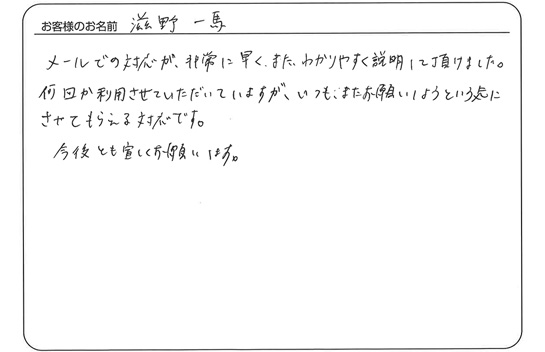 お客様のお名前 滋野 一馬
メールでの対応が、非常に早く、また、わかりやすく説明して頂けました。
何回か利用させていただいていますが、いつも、またお願いしようという気に
させてもらえる対応です。
今後とも宜しくお願いします。